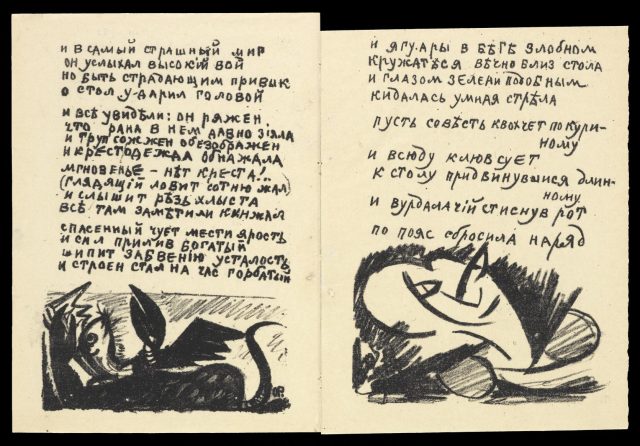 и в самый страшный миг
он услыхал высокій вой
но быть страдающим привык
о стол ударил головой
и всѣ увидѣли: он ряжен
что рана в нем давно зіяла
и труп сожжен обезображен
и крест одежда обнажала
мгновенье – нѣт креста!..
(глядящій ловит сотню жал)
и слышит рѣзь хлыста
всѣ там замѣтили кинжал
спасенный чует мести ярость
и сил прилив богатый
шипит забвенію усталость
и строен стал на час горбатый
ОР
и ягуары в бѣге злобном
кружатся вѣчно близ стола
и глазом зелени подобным
кидалась умная стрѣла
пусть совѣсть квохчет по кури-
ному
и всюду клюв сует
к столу придвинувшися длин-
ному
и вурдалачій стиснув рот
по пояс сбросила наряд